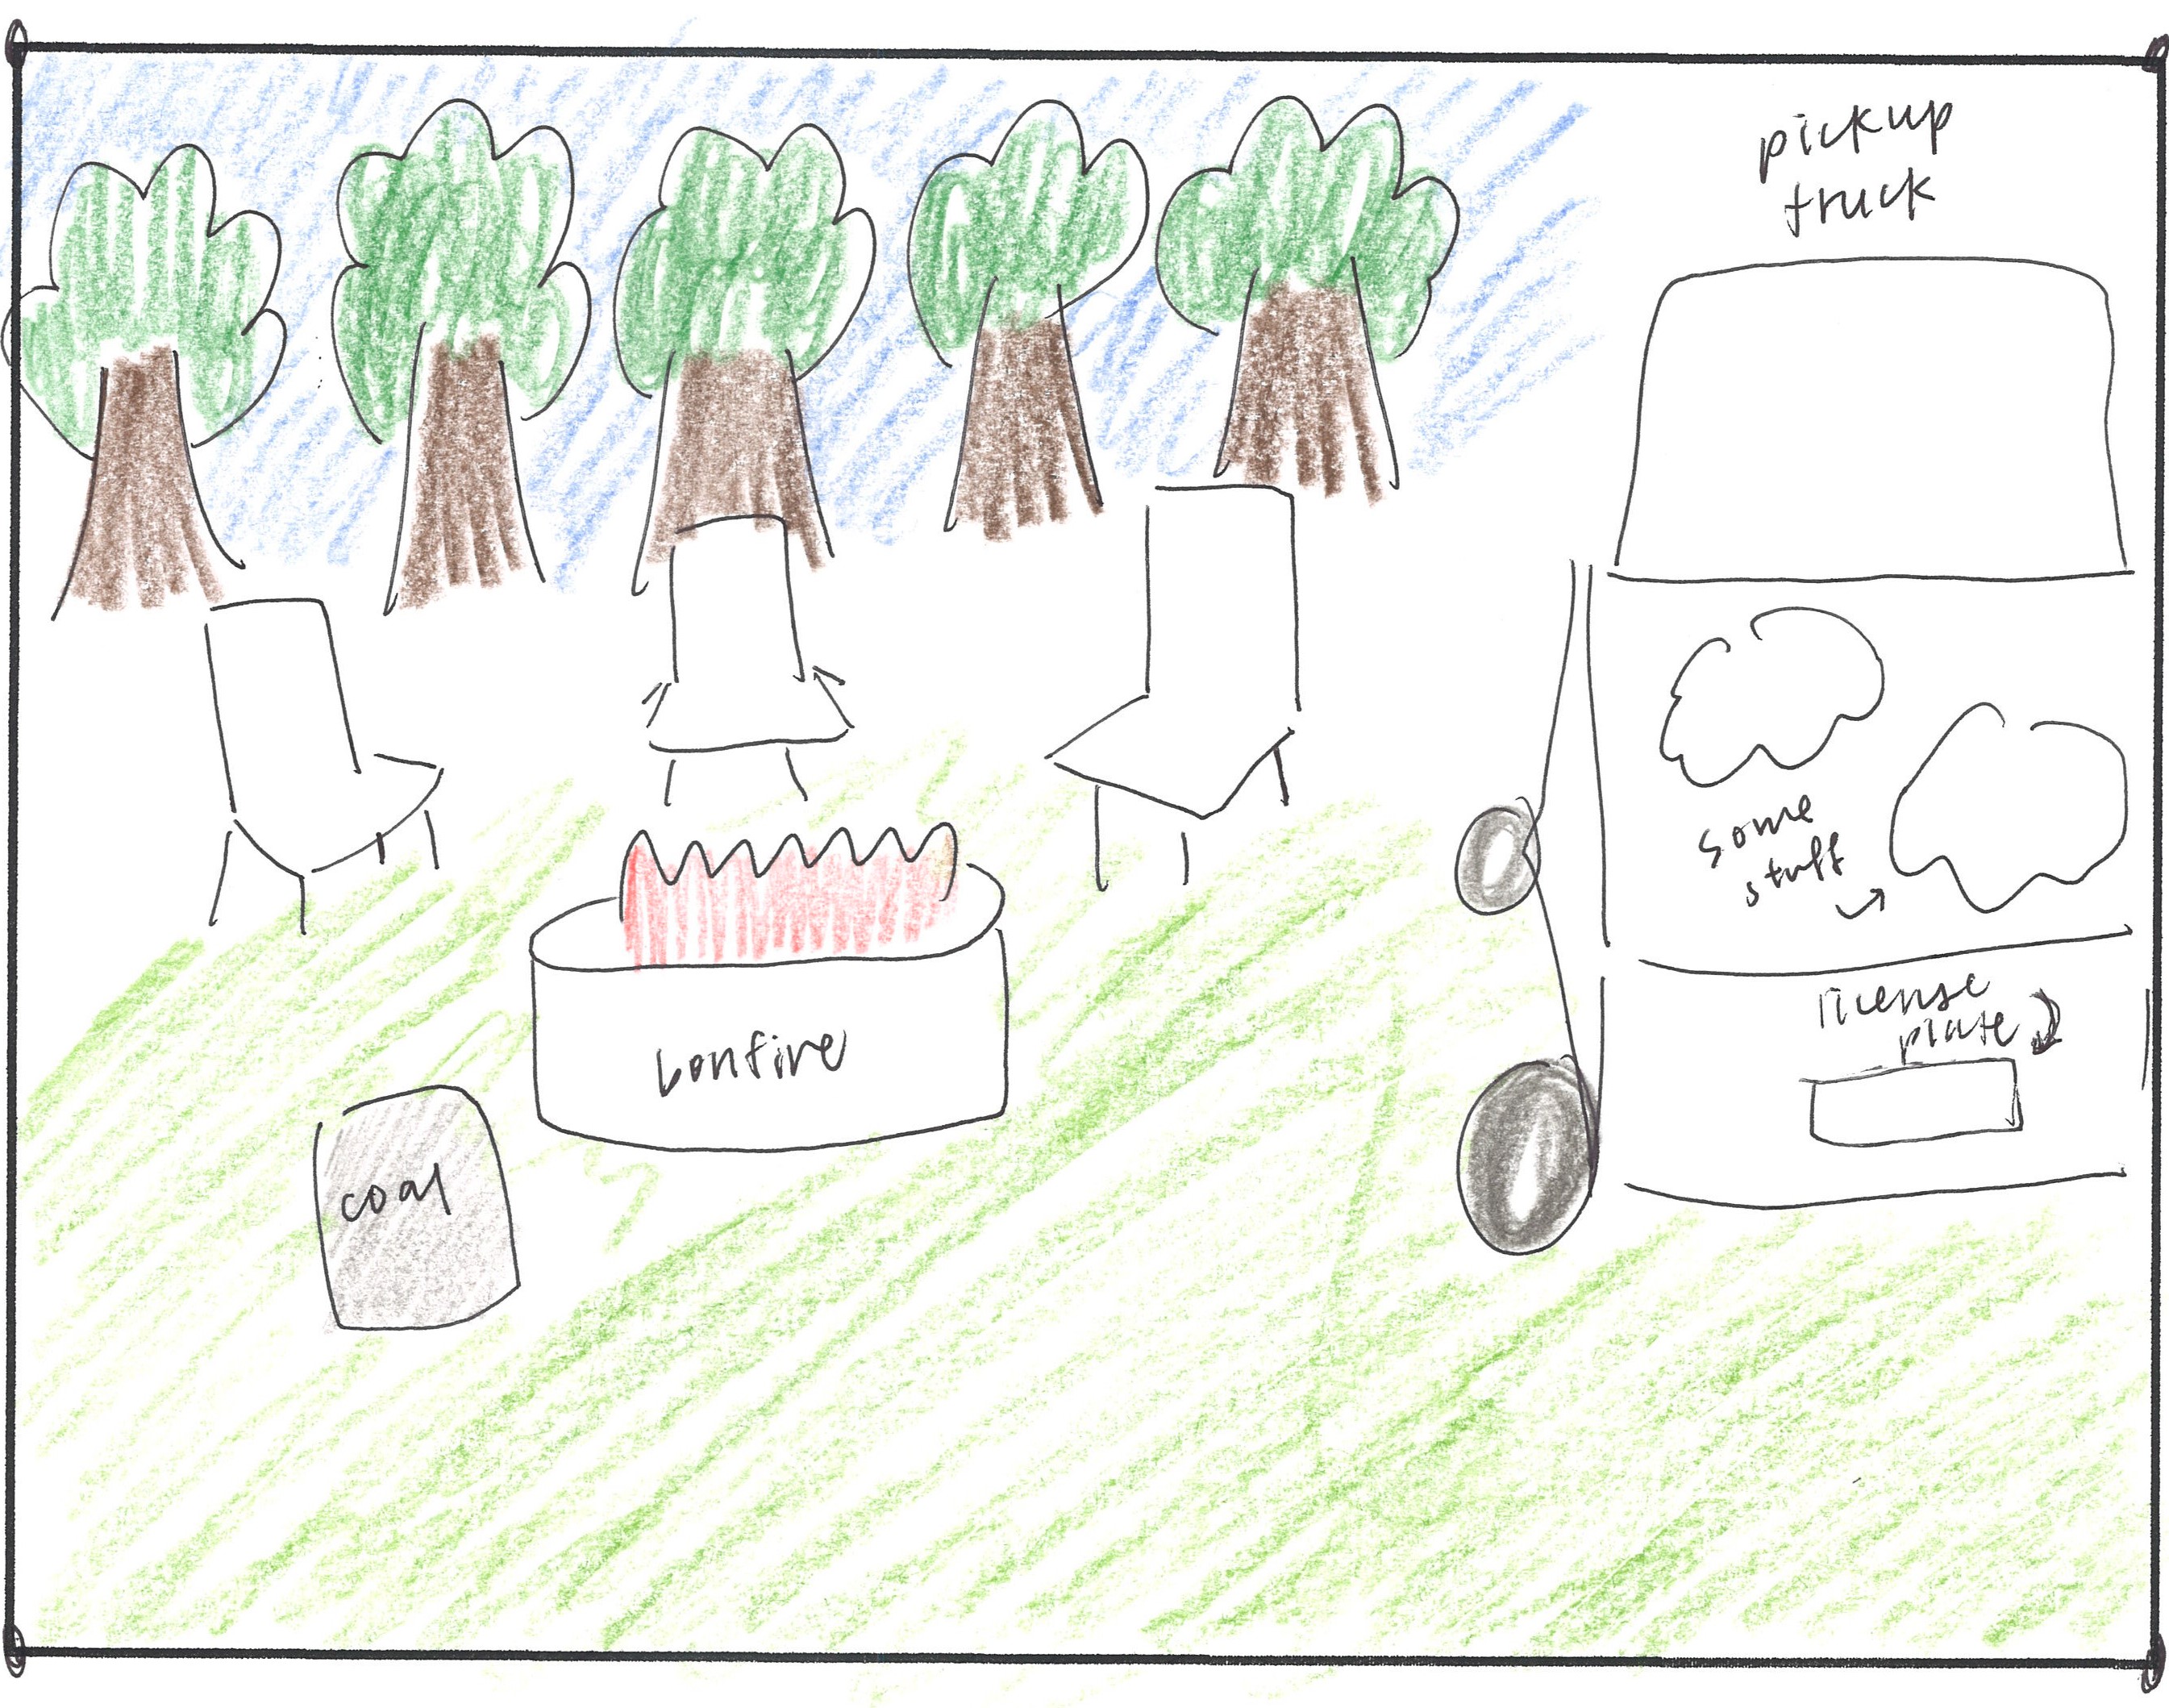 pickup
truck
some
stuff
license
plate
bonfire
coal